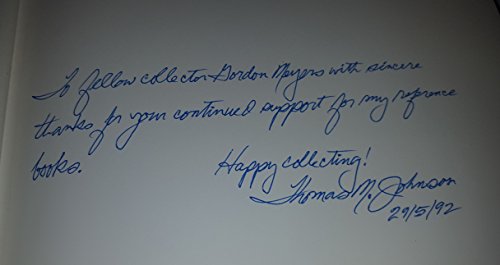 To fellow collector Gordon Meyers with sincere
thanks for your continued support for my reference
books.
Happy collecting!
Thomas M. Johnson
29/5/92